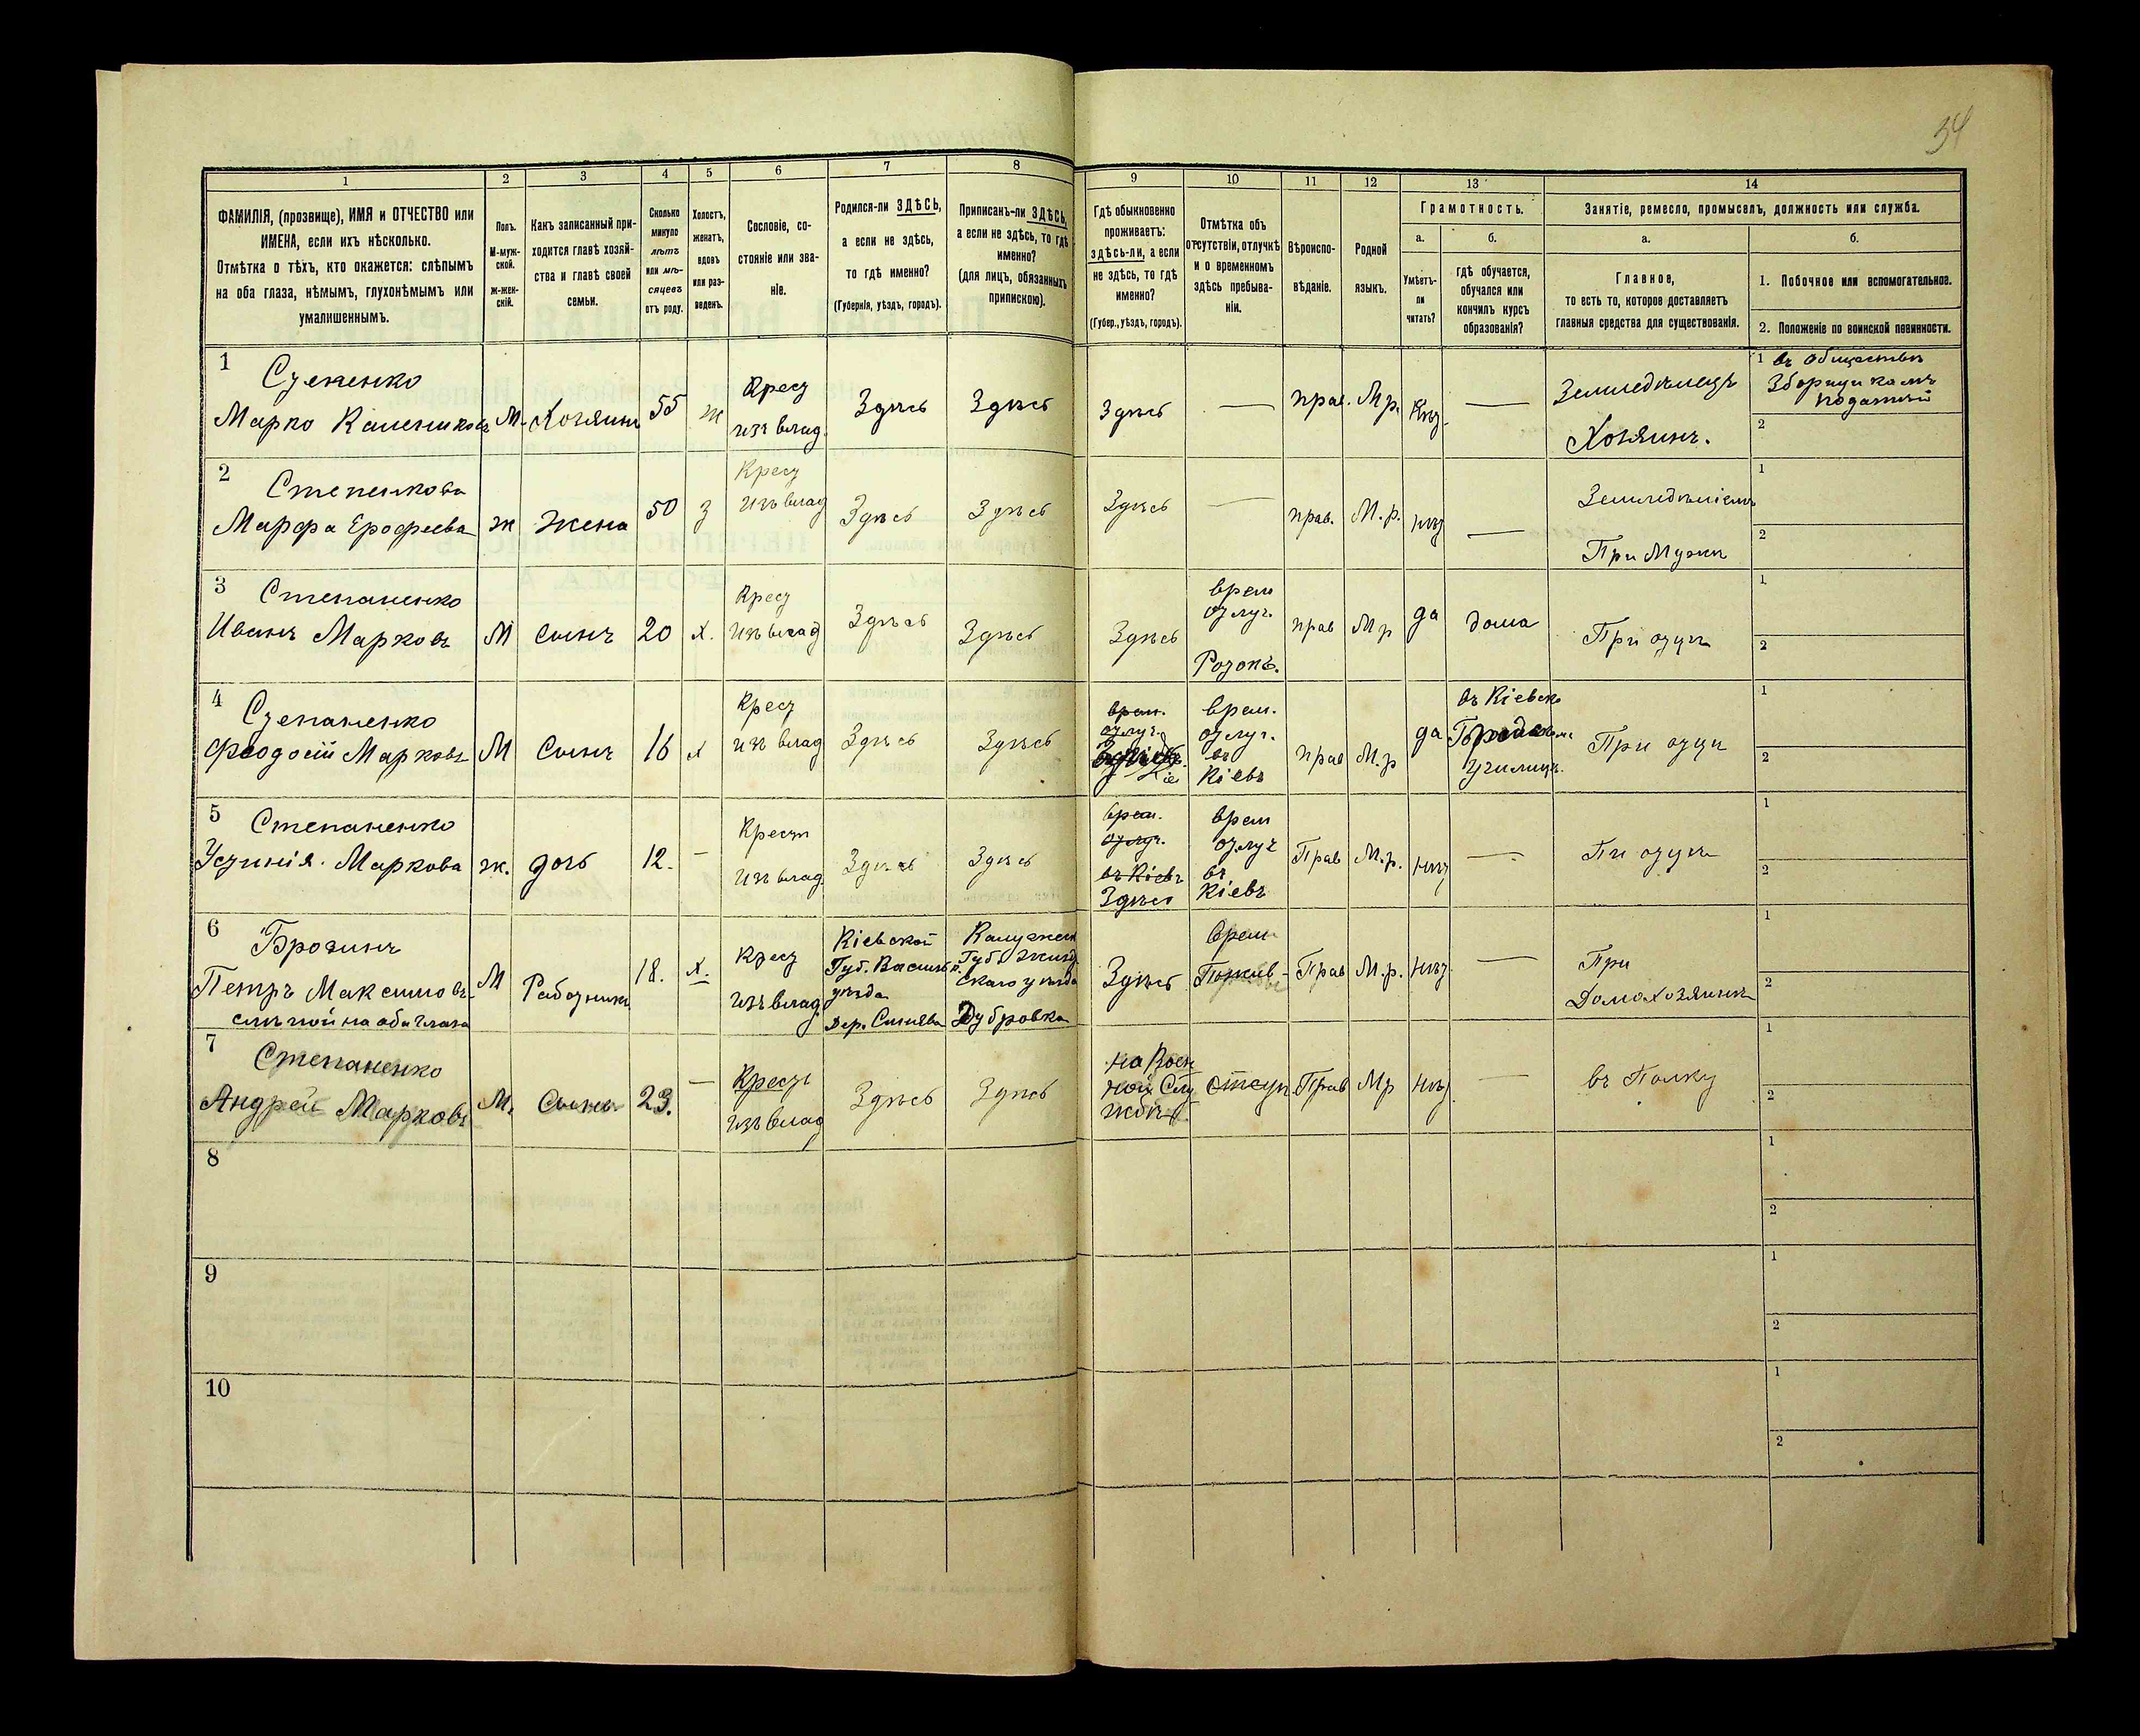 34
1 2 3 4 5 6 7 8 9 10 11 12 13 14
ФАМИЛІЯ, (прозвище), ИМЯ и ОТЧЕСТВО или
ИМЕНА, если ихъ нѣсколько.
Отмѣтка о тѣхъ, кто окажется: слѣпымъ
на оба глаза, нѣмымъ, глухонѣмымъ или
умалишеннымъ.
Полъ.
М-муж-
ской.
ж-жен-
скій.
Какъ записанный при-
ходится главѣ хозяй-
ства и главѣ своей
семьи.
Сколько
минуло
лѣтъ
или мѣ-
сяцевъ
отъ роду.
Холостъ,
женатъ,
вдовъ
или раз-
веденъ.
Сословіе, со-
стояніе или зва-
ніе.
Родился-ли ЗДѢСЬ,
а если не здѣсь,
то гдѣ именно?
(Губернія, уѣздъ, городъ).
Приписанъ-ли ЗДѢСЬ,
а если не здѣсь, то гдѣ
именно?
(для лицъ, обязанныхъ
припискою).
Гдѣ обыкновенно
проживаетъ:
здѣсь-ли, а если
не здѣсь, то гдѣ
именно?
(Губер., уѣздъ, городъ).
Отмѣтка объ
отсутствіи, отлучкѣ
и о временномъ
здѣсь пребыва-
ніи.
Вѣроиспо-
вѣданіе.
Родной
языкъ.
Грамотность.
а.
Умѣетъ-
ли
читать?
б.
гдѣ обучается,
обучался или
кончилъ курсъ
образованія?
Занятіе, ремесло, промыселъ, должность или служба.
а.
Главное,
то есть то, которое доставляетъ
главныя средства для существованія.
б.
1. Побочное или вспомогательное.
2. Положеніе по воинской повинности.
1
Марко
М.
Хозяинъ
55
ж
Крест
изъ влад.
Здѣсь
Здѣсь
Здѣсь
—
прав.
Мр.
—
Хозяинъ.
1 въ Обществѣ
податный
2
2
Марфа Ерофеева
ж
Жена
50
з
Крест
изъ влад
Здѣсь
Здѣсь
Здѣсь
—
прав.
М.р.
нѣт
—
При Мужѣ
1
2
3 Степаненко
Иванъ Марковъ
М
Сынъ
20
х.
Крест
изъ влад
Здѣсь
Здѣсь
Здѣсь
врем
отлуч.
прав
Мр
да
дома
При отцѣ
1
2
4 Степаненко
Феодосій Марковъ
М
Сынъ
16
х
Крест
изъ влад
Здѣсь
Здѣсь
врем.
отлуч.
врем.
отлуч.
въ
Кіевъ
прав
М.р
да
въ Кіевск
Училищ.
При отцѣ
1
2
5 Степаненко
Устинія. Маркова
ж.
дочь
12.
—
Крест
изъ влад.
Здѣсь
Здѣсь
врем.
отлуч.
въ Кіевъ
Здѣсь
врем
отлуч
въ
Кіевъ
Прав
М.р.
нѣт
—
Пи отцѣ
1
2
6
Петръ Максимовъ
слѣпой на оба глаза
М
Работникъ
18.
х.
Крест
изъ влад.
Кіевской
Губ. Васильк.
уѣзда
Дубровка
Здѣсь
врем
Прав
М.р.
нѣт
—
При
Домохозяинѣ
1
2
7 Степаненко
Андрей Марковъ
М.
Сынъ
23.
—
Крест
изъ влад
Здѣсь
Здѣсь
на Воен
ной Слу
жбѣ
Прав
Мр
нѣт
—
въ Полку
1
2
8
1
2
9
1
2
10
1
2